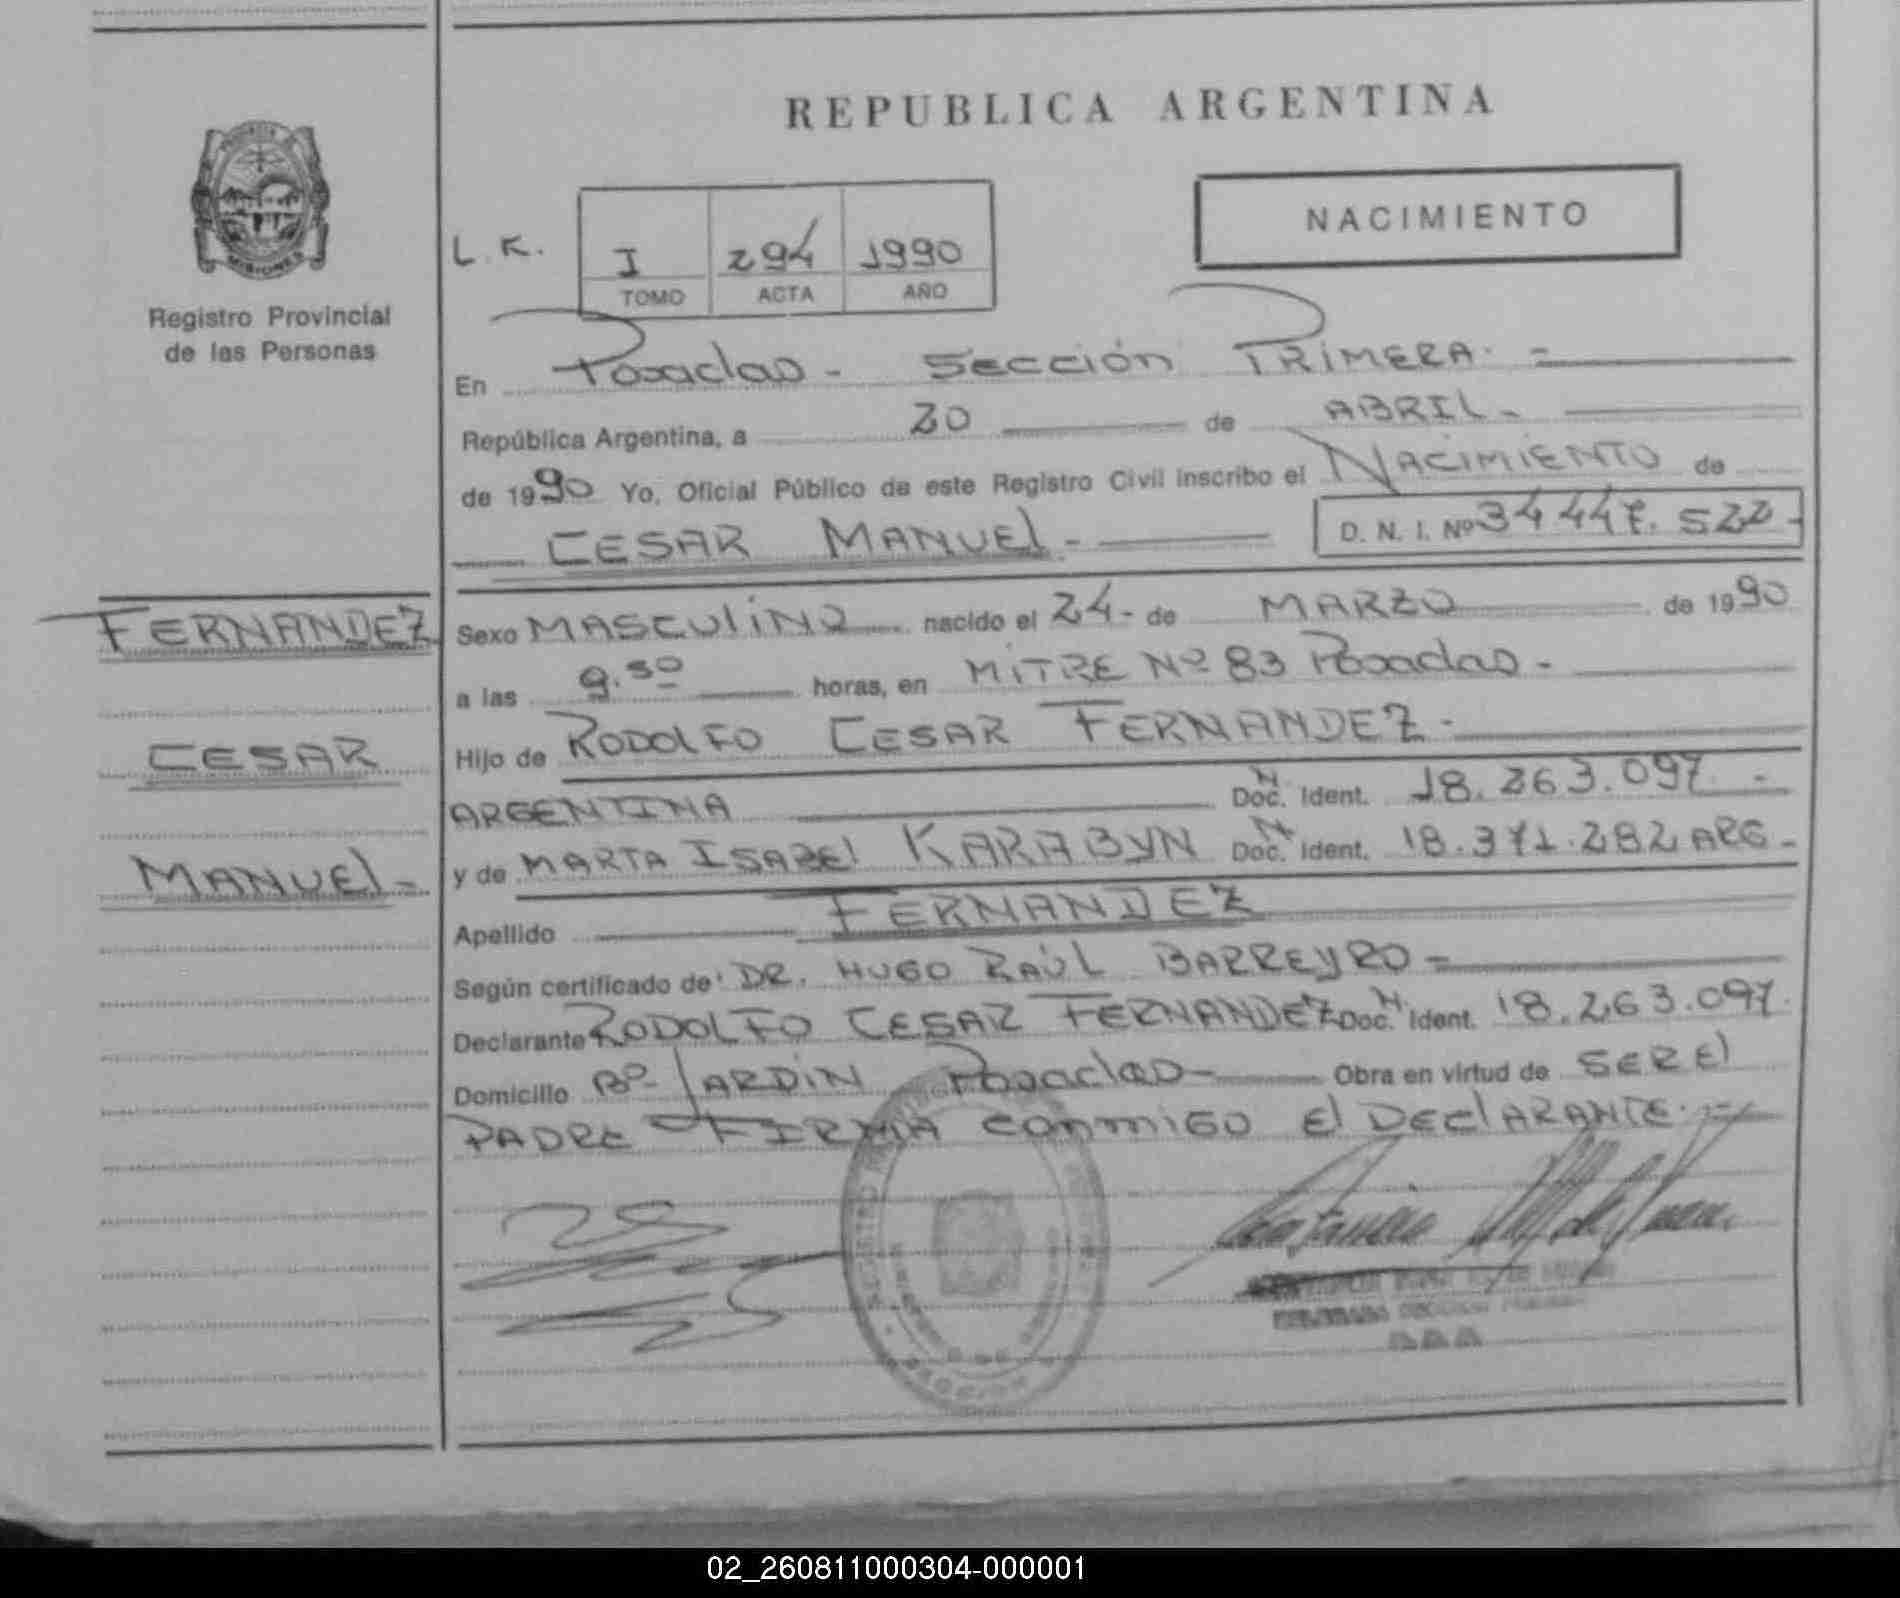 REPUBLICA ARGENTINA
NACIMIENTO
MISIONES
Registro Provincial
de las Personas
L.K.
I 294 1990
TOMO ACTA AÑO
En Posadas - Sección PRIMERA.=
República Argentina, a 20 de ABRIL-
de 1990 Yo, Oficial Público de este Registro Civil inscribo el NACIMIENTO de
CESAR MANUEL- D. N. I. Nº 34447.522-
FERNANDEZ
CESAR
MANUEL-
Sexo MASCULINO nacido el 24- de MARZO de 1990
a las 9.30 horas, en MITRE Nº 83 Posadas-
Hijo de RODOLFO CESAR FERNANDEZ.-
ARGENTINA Doc. Ident. 18.263.097.-
y de MARTA ISABEL KARABYN Doc. Ident. 18.371.282 ARG-
Apellido FERNANDEZ
Según certificado de: DR. HUGO RAÚL BARREYRO=
Declarante RODOLFO CESAR FERNANDEZ Doc. Ident. 18.263.097.
Domicilio Bº JARDIN Posadas- Obra en virtud de SER El
PADRE FIRMA conmigo El DEClARANTE.=
02_260811000304-000001